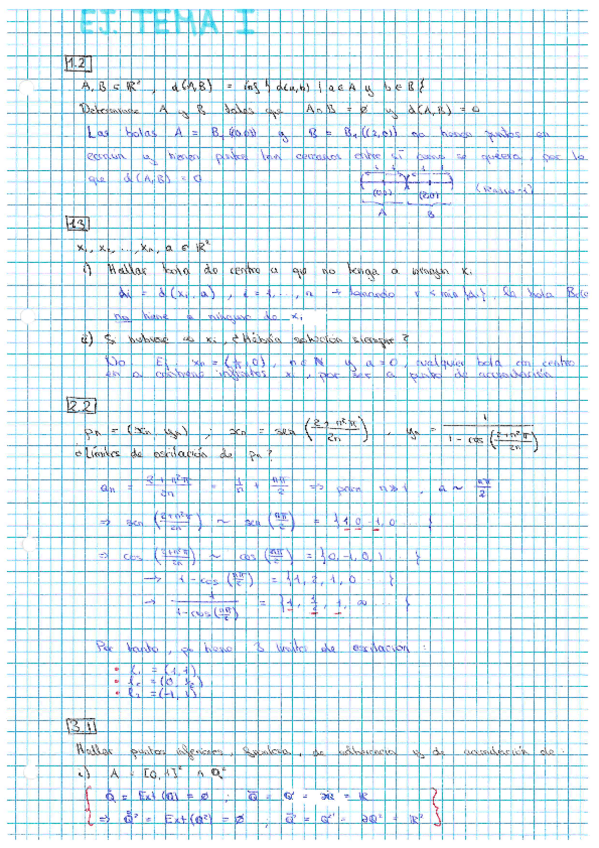 EJ. TEMA I
1.2
A, B ⊂ ℝ², d(A,B) = inf { d(a,b) | a∈A y b∈B }
Determinar A y B tales que A∩B = ∅ y d(A,B) = 0
Las bolas A = B₁((0,0)) y B = B₁((2,0)) no tienen puntos en
común y tienen puntos tan cercanos entre sí como se quiera, por lo
que d(A,B) = 0
(0,0) (2,0)
A B
1.3
x₁, x₂, ..., xₙ, a ∈ ℝ²
i) Hallar bola de centro a que no tenga a ningún xᵢ
dᵢ = d(xᵢ, a), i = 1, ..., n → tomando r < min{dᵢ}, la bola
no tiene a ninguno de xᵢ
ii) Si hubiese ∞ xᵢ, ¿Habría solución siempre?
No Ej: xₙ = (1/n, 0), n∈ℕ y a=0, cualquier bola con centro
en a contiene infinitos xᵢ, por ser a punto de acumulación
2.2
pₙ = (xₙ, yₙ) ; xₙ = sen((2+n²π)/2n), yₙ = 1/(1-cos((2+n²π)/2n))
¿Límites de oscilación de pₙ?
aₙ = (2+n²π)/2n = 1/n + nπ/2 => para n≫1, a ~ nπ/2
=> sen((2+n²π)/2n) ~ sen(nπ/2) = {1, 0, -1, 0 ... }
=> cos((2+n²π)/2n) ~ cos(nπ/2) = {0, -1, 0, 1 ... }
→ 1-cos(nπ/2) = {1, 2, 1, 0 ... }
→ 1/(1-cos(nπ/2)) = {1, 1/2, 1, ∞ ... }
Por tanto, pₙ tiene 3 límites de oscilación:
• l₁ = (1, 1)
• l₂ = (0, 1/2)
• l₃ = (-1, 1)
3.1
Hallar puntos interiores, frontera, de adherencia y de acumulación de:
i) A = [0,1]² ∩ ℚ²
= Ext(ℚ) = ∅ ; = ℚ' = ∂ℚ = ℝ
=> = Ext(ℚ²) = ∅ ; = ℚ' = ∂ℚ² = ℝ²